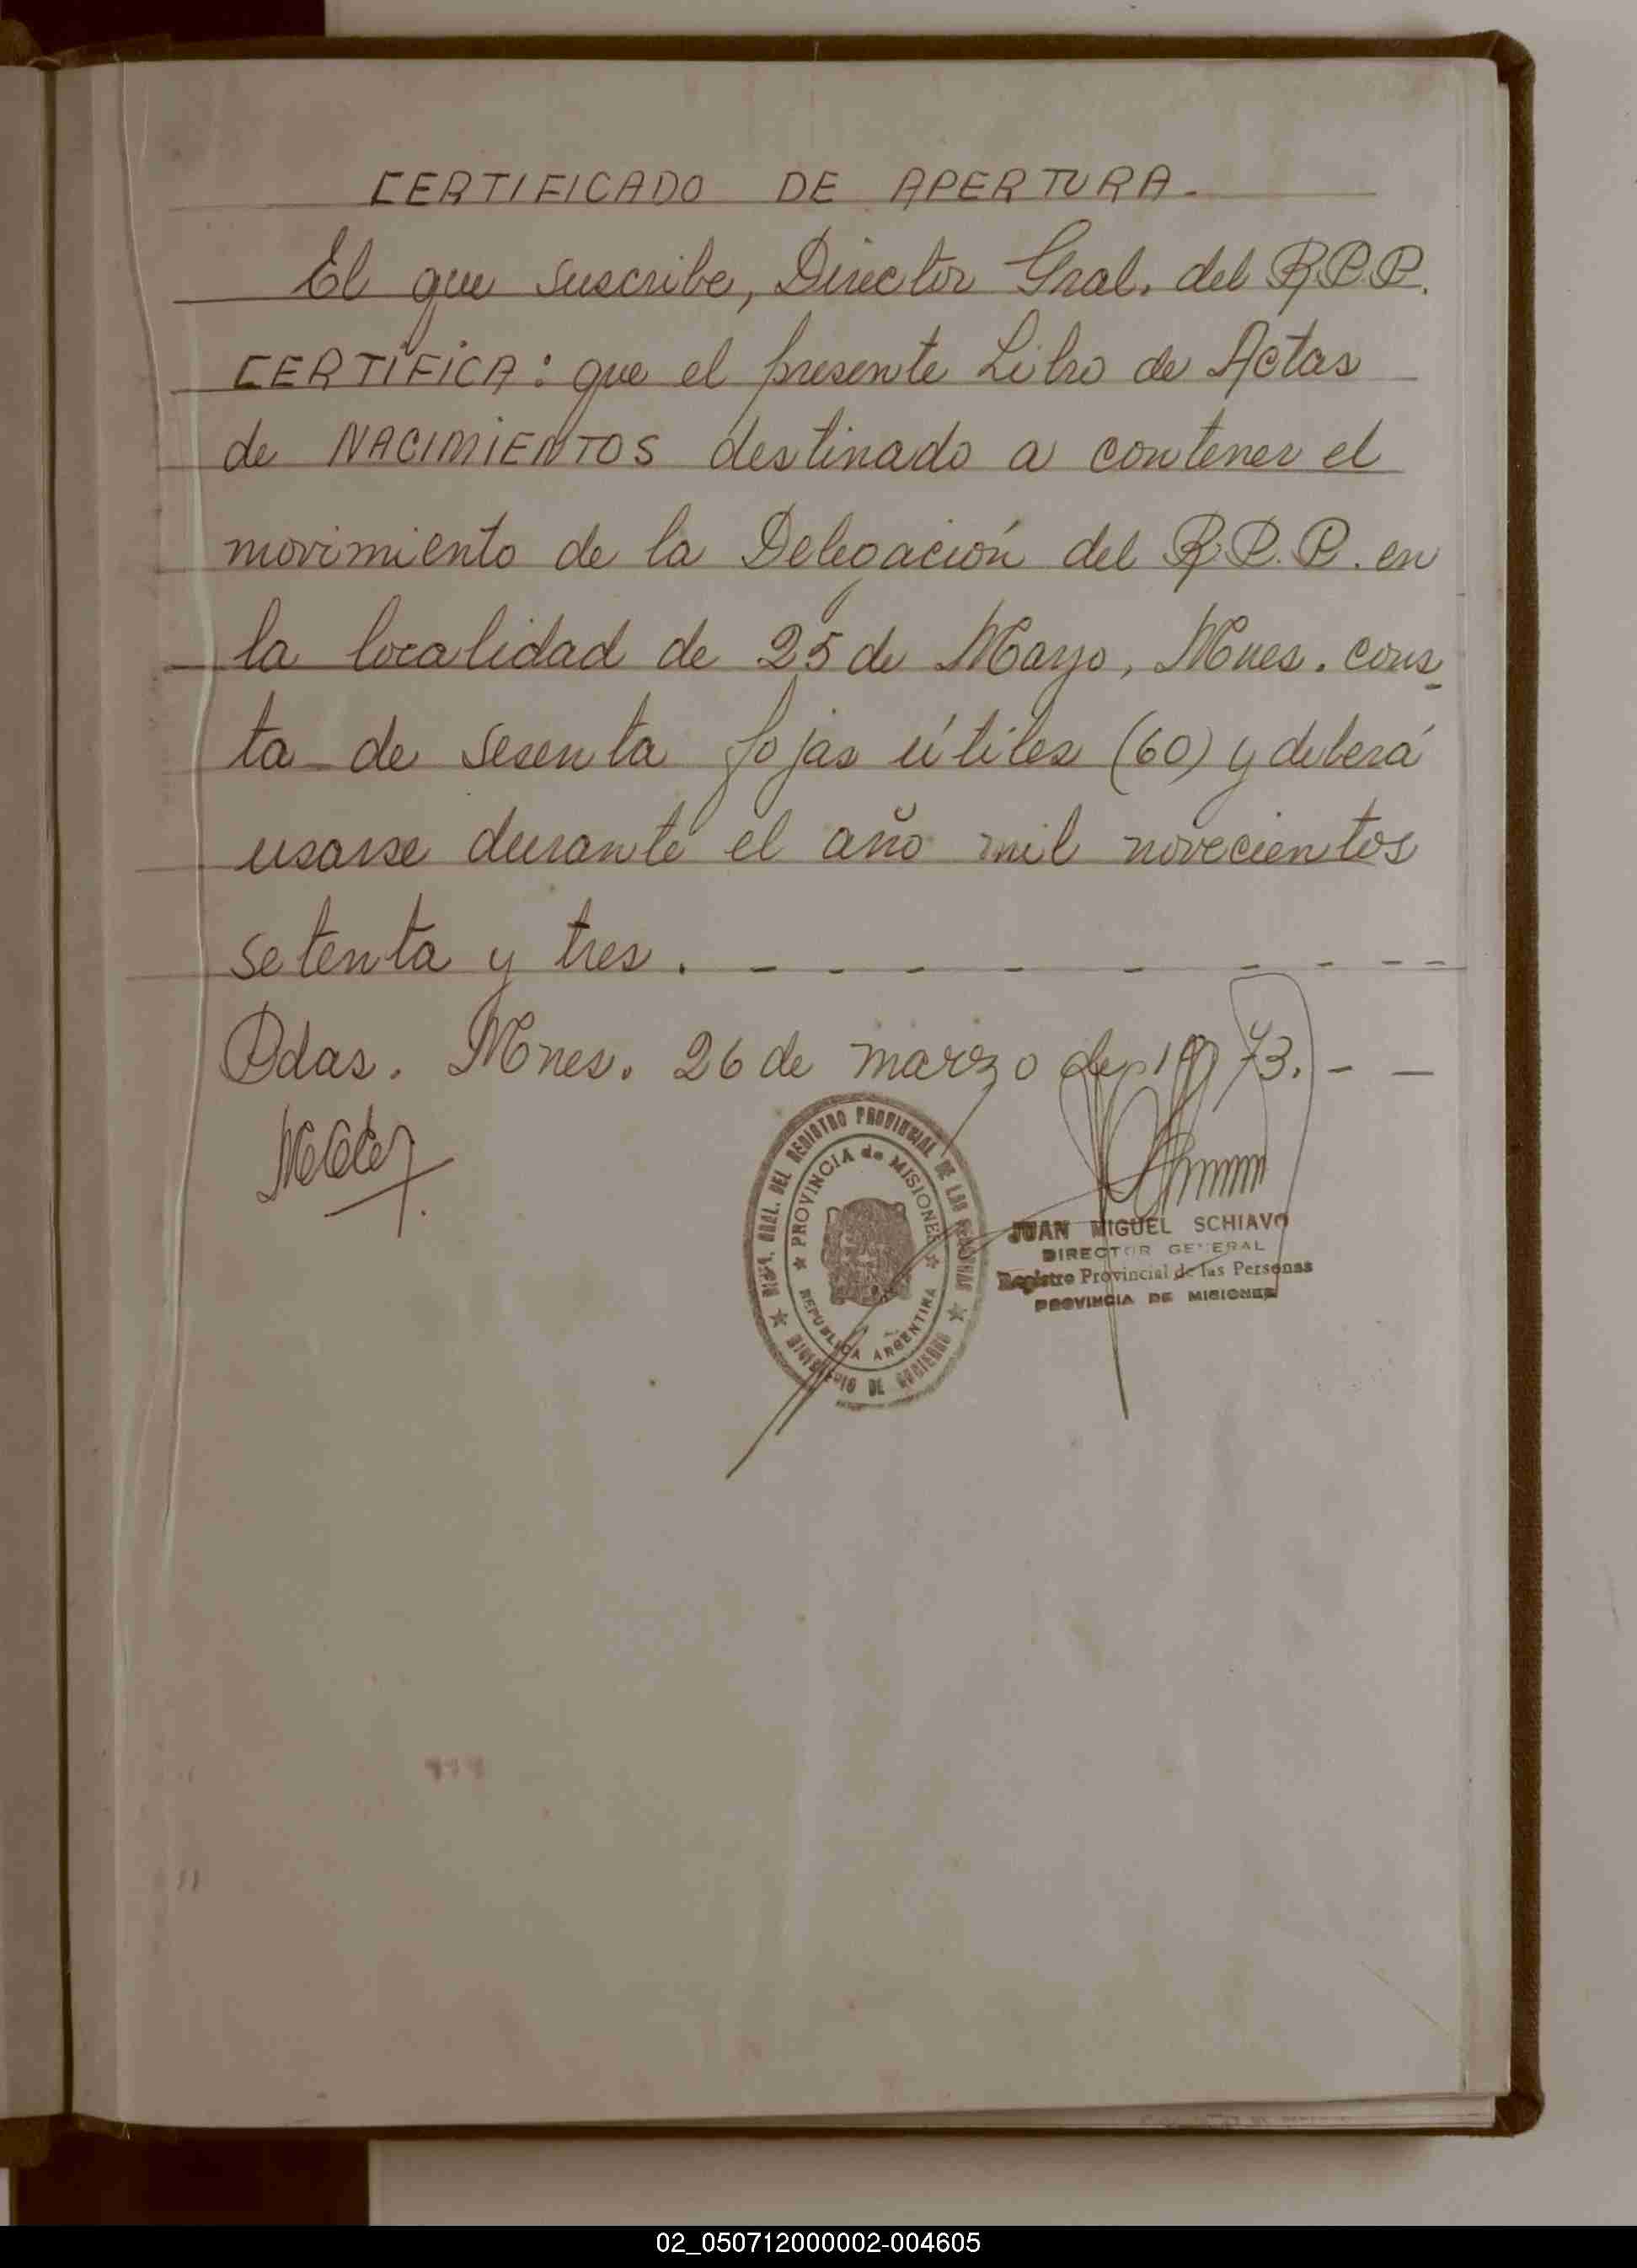 CERTIFICADO DE APERTURA.
El que suscribe, Director Gral. del R.P.P.
CERTIFICA: que el presente Libro de Actas
de NACIMIENTOS destinado a contener el
movimiento de la Delegación del R.P.P. en
la localidad de 25 de Mayo, Mnes. cons-
ta de sesenta fojas útiles (60) y deberá
usarse durante el año mil novecientos
setenta y tres. - - - - - - - - -
Pdas. Mnes. 26 de marzo de 1973. - -
GRAL. DEL REGISTRO PROVINCIAL DE LAS PERSONAS
PROVINCIA de MISIONES
REPUBLICA ARGENTINA
MINISTERIO DE GOBIERNO
JUAN MIGUEL SCHIAVO
DIRECTOR GENERAL
Registro Provincial de las Personas
PROVINCIA DE MISIONES
02_050712000002-004605